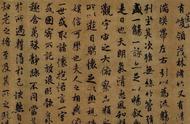 領茂林脩竹又有清
湍暎帶左右引以為流觴
列坐其次雖無絲竹管
盛一觴一詠亦足以暢敘
是日也天朗氣清惠風和
觀宇宙之大俯察品類之
所以遊目騁懷足以極視
娛信可樂也夫人之相與
一世或取諸懷抱悟言一
或因寄所託放浪形骸
趣舍萬殊靜躁不同
於所遇蹔得於己
知老之將至及其所之